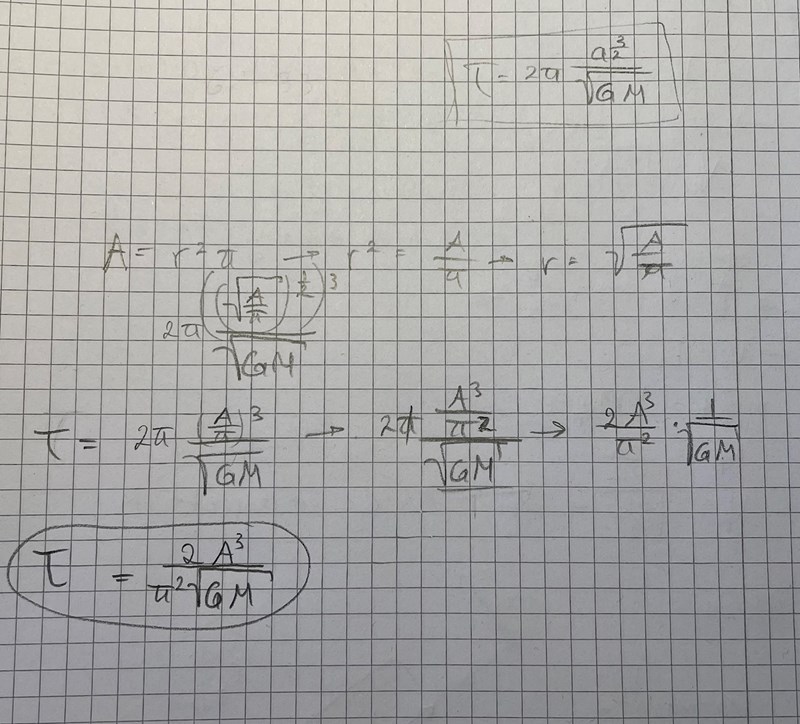 τ = 2π a^(3/2) / √(GM)
A = r² π → r² = A/π → r = √(A/π)
2π (((√(A/π))^(1/2))^3) / √(GM)
τ = 2π (A/π)³ / √(GM) → 2π (A³/π²) / √(GM) → 2A³/π² · 1/√(GM)
τ = 2A³ / (π²√(GM))